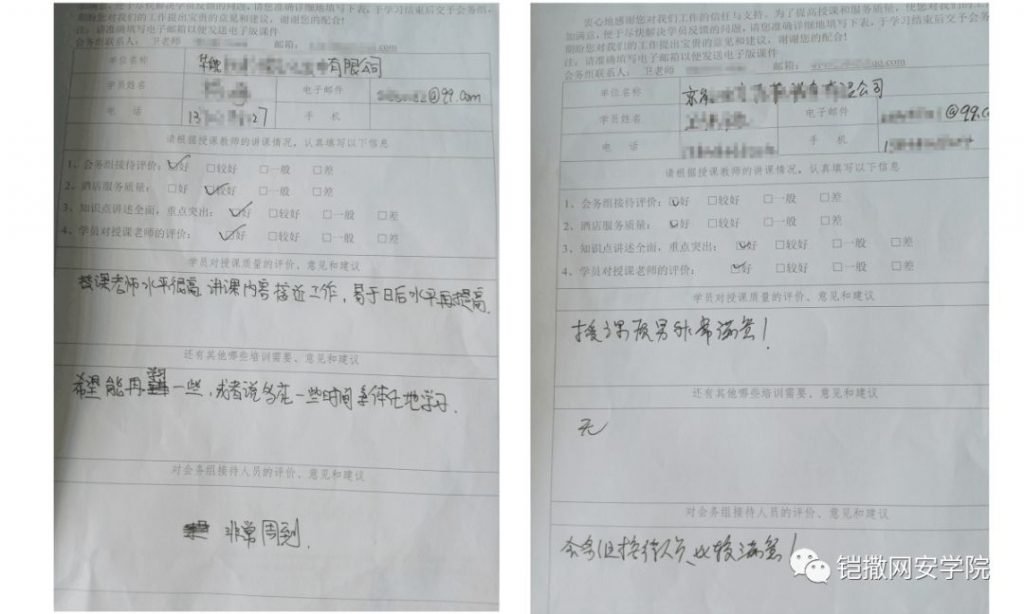 加满意，便于尽快解决学员反馈的问题，请您准确详细地填写下表，于学习结束后交予会务组，
期盼您对我们的工作提出宝贵的意见和建议，谢谢您的配合！
注：请准确填写电子邮箱以便发送电子版课件
会务组联系人：卫老师 邮箱：
单位名称 有限公司
学员姓名 电子邮件 @qq.com
电 话 13 27 手 机
请根据授课教师的讲课情况，认真填写以下信息
1、会务组接待评价：☑好 □较好 □一般 □差
2、酒店服务质量：□好 ☑较好 □一般 □差
3、知识点讲述全面，重点突出：☑好 □较好 □一般 □差
4、学员对授课老师的评价：☑好 □较好 □一般 □差
学员对授课质量的评价、意见和建议
授课老师水平很高，讲课内容接近工作，易于日后水平再提高。
还有其他哪些培训需要、意见和建议
希望能再 一些，或者说多花一些时间系统化地学习。
对会务组接待人员的评价、意见和建议
非常周到。
衷心地感谢您对我们工作的信任与支持。为了提高授课和服务质量，使您对我们的
加满意，便于尽快解决学员反馈的问题，请您准确详细地填写下表，于学习结束后交予会务
期盼您对我们的工作提出宝贵的意见和建议，谢谢您的配合！
注：请准确填写电子邮箱以便发送电子版课件
会务组联系人：卫老师 邮箱： qq.com
单位名称 京 有限公司
学员姓名 电子邮件 @qq.
电 话 手 机 1
请根据授课教师的讲课情况，认真填写以下信息
1、会务组接待评价：☑好 □较好 □一般 □差
2、酒店服务质量：☑好 □较好 □一般 □差
3、知识点讲述全面，重点突出：☑好 □较好 □一般 □差
4、学员对授课老师的评价：☑好 □较好 □一般 □差
学员对授课质量的评价、意见和建议
授课质量非常满意！
还有其他哪些培训需要、意见和建议
无
对会务组接待人员的评价、意见和建议
会务组接待人员也较满意！
铠撒网安学院